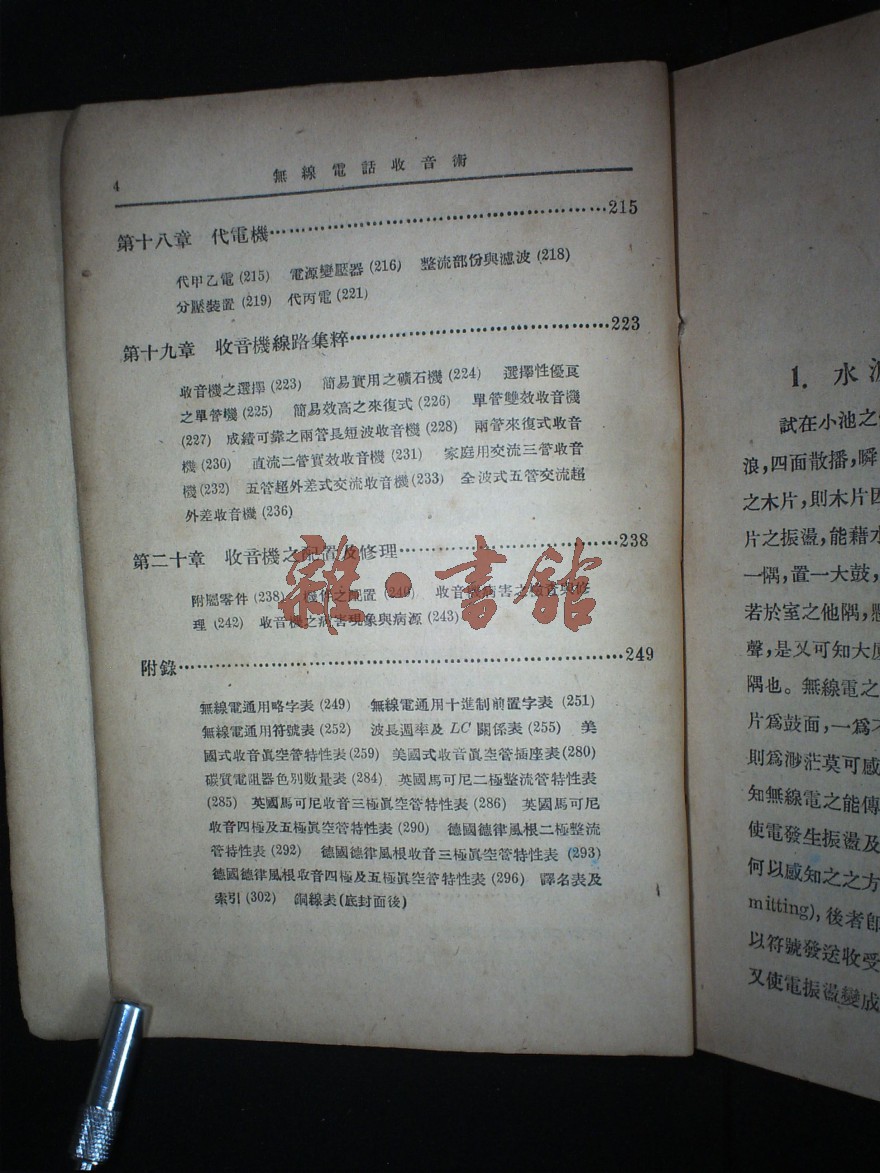 4 無線電話收音術
第十八章 代電機…………………………………215
代甲乙電 (215) 電源變壓器 (216) 整流部份與濾波 (218)
分壓裝置 (219) 代丙電 (221)
第十九章 收音機線路集粹…………………………223
收音機之選擇 (223) 簡易實用之礦石機 (224) 選擇性優良
之單管機 (225) 簡易效高之來復式 (226) 單管雙效收音機
(227) 成績可靠之兩管長短波收音機 (228) 兩管來復式收音
機 (230) 直流二管實效收音機 (231) 家庭用交流三管收音
機 (232) 五管超外差式交流收音機 (233) 全波式五管交流超
外差收音機 (236)
第二十章 收音機之配置及修理……………………238
附屬零件 (238) 機件之配置 (240) 收音機病害之檢查與修
理 (242) 收音機之病害現象與病源 (243)
附錄……………………………………………249
無線電通用略字表 (249) 無線電通用十進制前置字表 (251)
無線電通用符號表 (252) 波長週率及 LC 關係表 (255) 美
國式收音眞空管特性表 (259) 美國式收音眞空管插座表 (280)
碳質電阻器色別數量表 (284) 英國馬可尼二極整流管特性表
(285) 英國馬可尼收音三極眞空管特性表 (286) 英國馬可尼
收音四極及五極眞空管特性表 (290) 德國德律風根二極整流
管特性表 (292) 德國德律風根收音三極眞空管特性表 (293)
德國德律風根收音四極及五極眞空管特性表 (296) 譯名表及
索引 (302) 銅線表 (底封面後)
雜·書館
1. 水
試在小池之
浪，四面散播，瞬
之木片，則木片因
片之振盪，能藉水
一隅，置一大鼓，
若於室之他隅，懸
聲，是又可知大
隅也。無線電之
片爲鼓面，一爲
則爲渺茫莫可感
知無線電之能傳
使電發生振盪及
何以感知之之方
mitting)，後者卽
以符號發送收受
又使電振盪變成